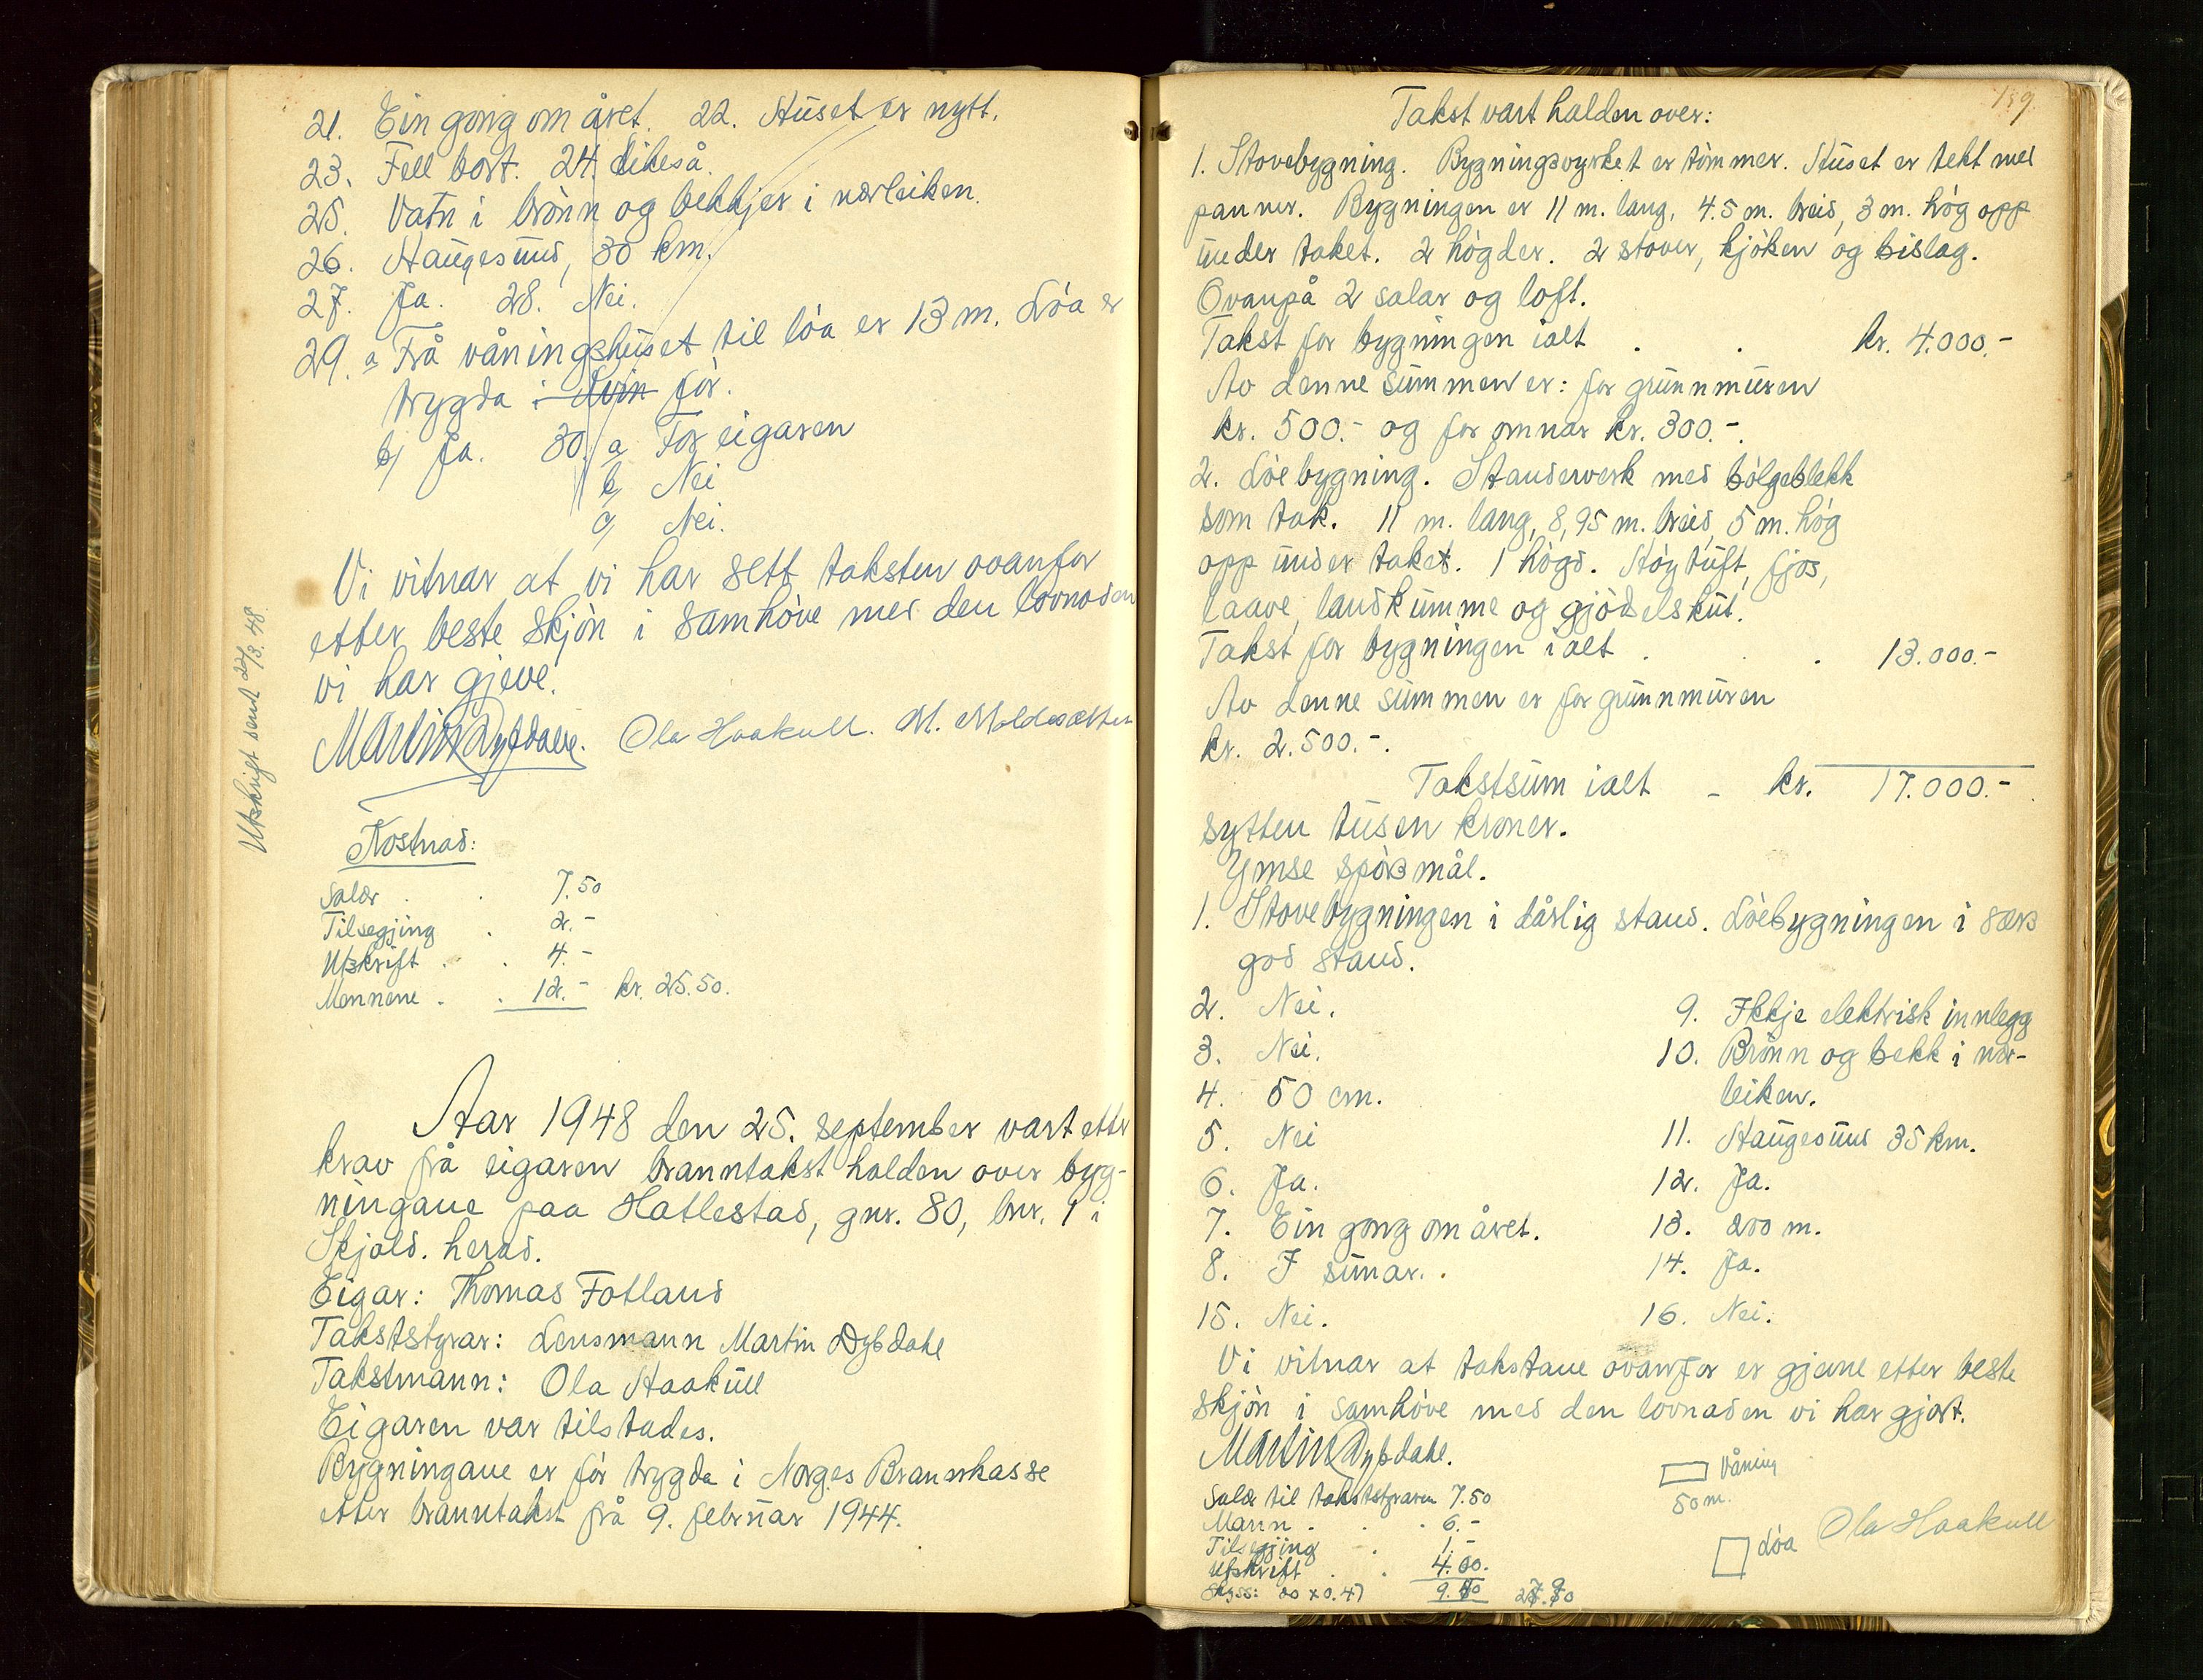 21. Ein gong om året. 22. Huset er nytt.
23. Fell bort. 24. Likeså.
25. Vatn i brönn og bekkjer i nærleiken.
26. Haugesund, 30 km.
27. Ja. 28. Nei.
29. a Frå våningshuset til löa er 13 m. Löa er
trygda i för.
b, Ja. 30. a For eigaren
b, Nei
c, Nei.
Vi vitnar at vi har sett taksten ovanfor
etter beste skjön i samhöve med den lovnaden
vi har gjeve.
Martin Dybdahl. Ola Haakull. M. Moldesæther
Utskrift send 27/3. 48.
Kostnad:
Salær . . 7.50
Tilsegjing . 2.-
Utskrift . . 4.-
Mennene . . 12.- kr. 25.50.
Aar 1948 den 25. september vart etter
krav frå eigaren branntakst halden over byg-
ningane paa Hatlestad, gnr. 80, bnr. 1 i
Skjold. herad.
Eigar: Thomas Fotland
Takststyrar: Lensmann Martin Dybdahl
Takstmann: Ola Haakull
Eigaren var tilstades.
Bygningane er för trygda i Norges Brannkasse
etter branntakst frå 9. februar 1944.
159.
Takst vart halden over:
1. Stovebygning. Bygningsvyrket er tömmer. Huset er tekt med
panner. Bygningen er 11 m. lang, 4.5 m. breid, 3 m. hög opp
under taket. 2 högder. 2 stover, kjöken og bislag.
Ovanpå 2 salar og loft.
Takst for bygningen ialt . . kr. 4.000.-
Av denne summen er: for grunnmuren
kr. 500.- og for omnar kr. 300.-.
2. Löebygning. Standerverk med bölgeblekk
som tak. 11 m. lang, 8,95 m. breid, 5 m. hög
opp under taket. 1 högd. Höytuft, fjos,
laave, landkumme og gjödselskut.
Takst for bygningen ialt . . . 13.000.-
Av denne summen er for grunnmuren
kr. 2.500.-.
Takstsum ialt - kr. 17.000.-
sytten tusen kroner.
Ymse spörsmål.
1. Stovebygningen i dårlig stand. Löebygningen i særs
god stand.
2. Nei.
3. Nei.
4. 50 cm.
5. Nei
6. Ja.
7. Ein gong om året.
8. I sunar.
15. Nei.
9. Ikkje elektrisk innlegg
10. Brönn og bekk i nær-
leiken.
11. Haugesund 35 km.
12. Ja.
13. 200 m.
14. Ja.
16. Nei.
Vi vitnar at takstane ovanfor er gjevne etter beste
skjön i samhöve med den lovnaden vi har gjort.
Martin Dybdahl.
Våning
50 m.
Löa
Ola Haakull
Salær til takststyraren 7.50
Mann . . . 6.-
Tilsegjing . 1.-
Utskrift . . 4.00.
Skyss: 20 x 0.47